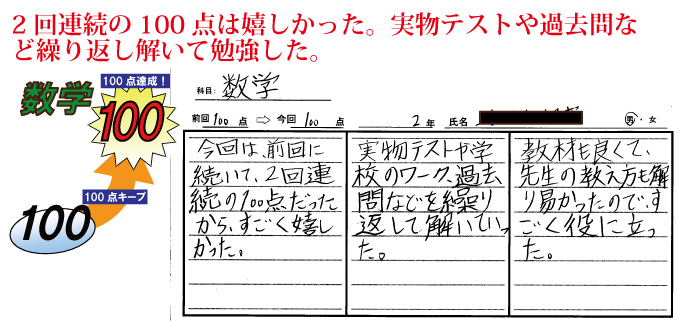 2回連続の100点は嬉しかった。実物テストや過去問な
ど繰り返し解いて勉強した。
数学
100点達成！
100
100点キープ
100
科目: 数学
前回 100 点 ⇨ 今回 100 点 2年 氏名 男・女
今回は、前回に
続いて、2回連
続の100点だった
から、すごく嬉し
かった。
実物テストや学
校のワーク、過去
問などを繰り
返して解いていっ
た。
教材も良くて、
先生の教え方も解
り易かったので、す
ごく役に立っ
た。